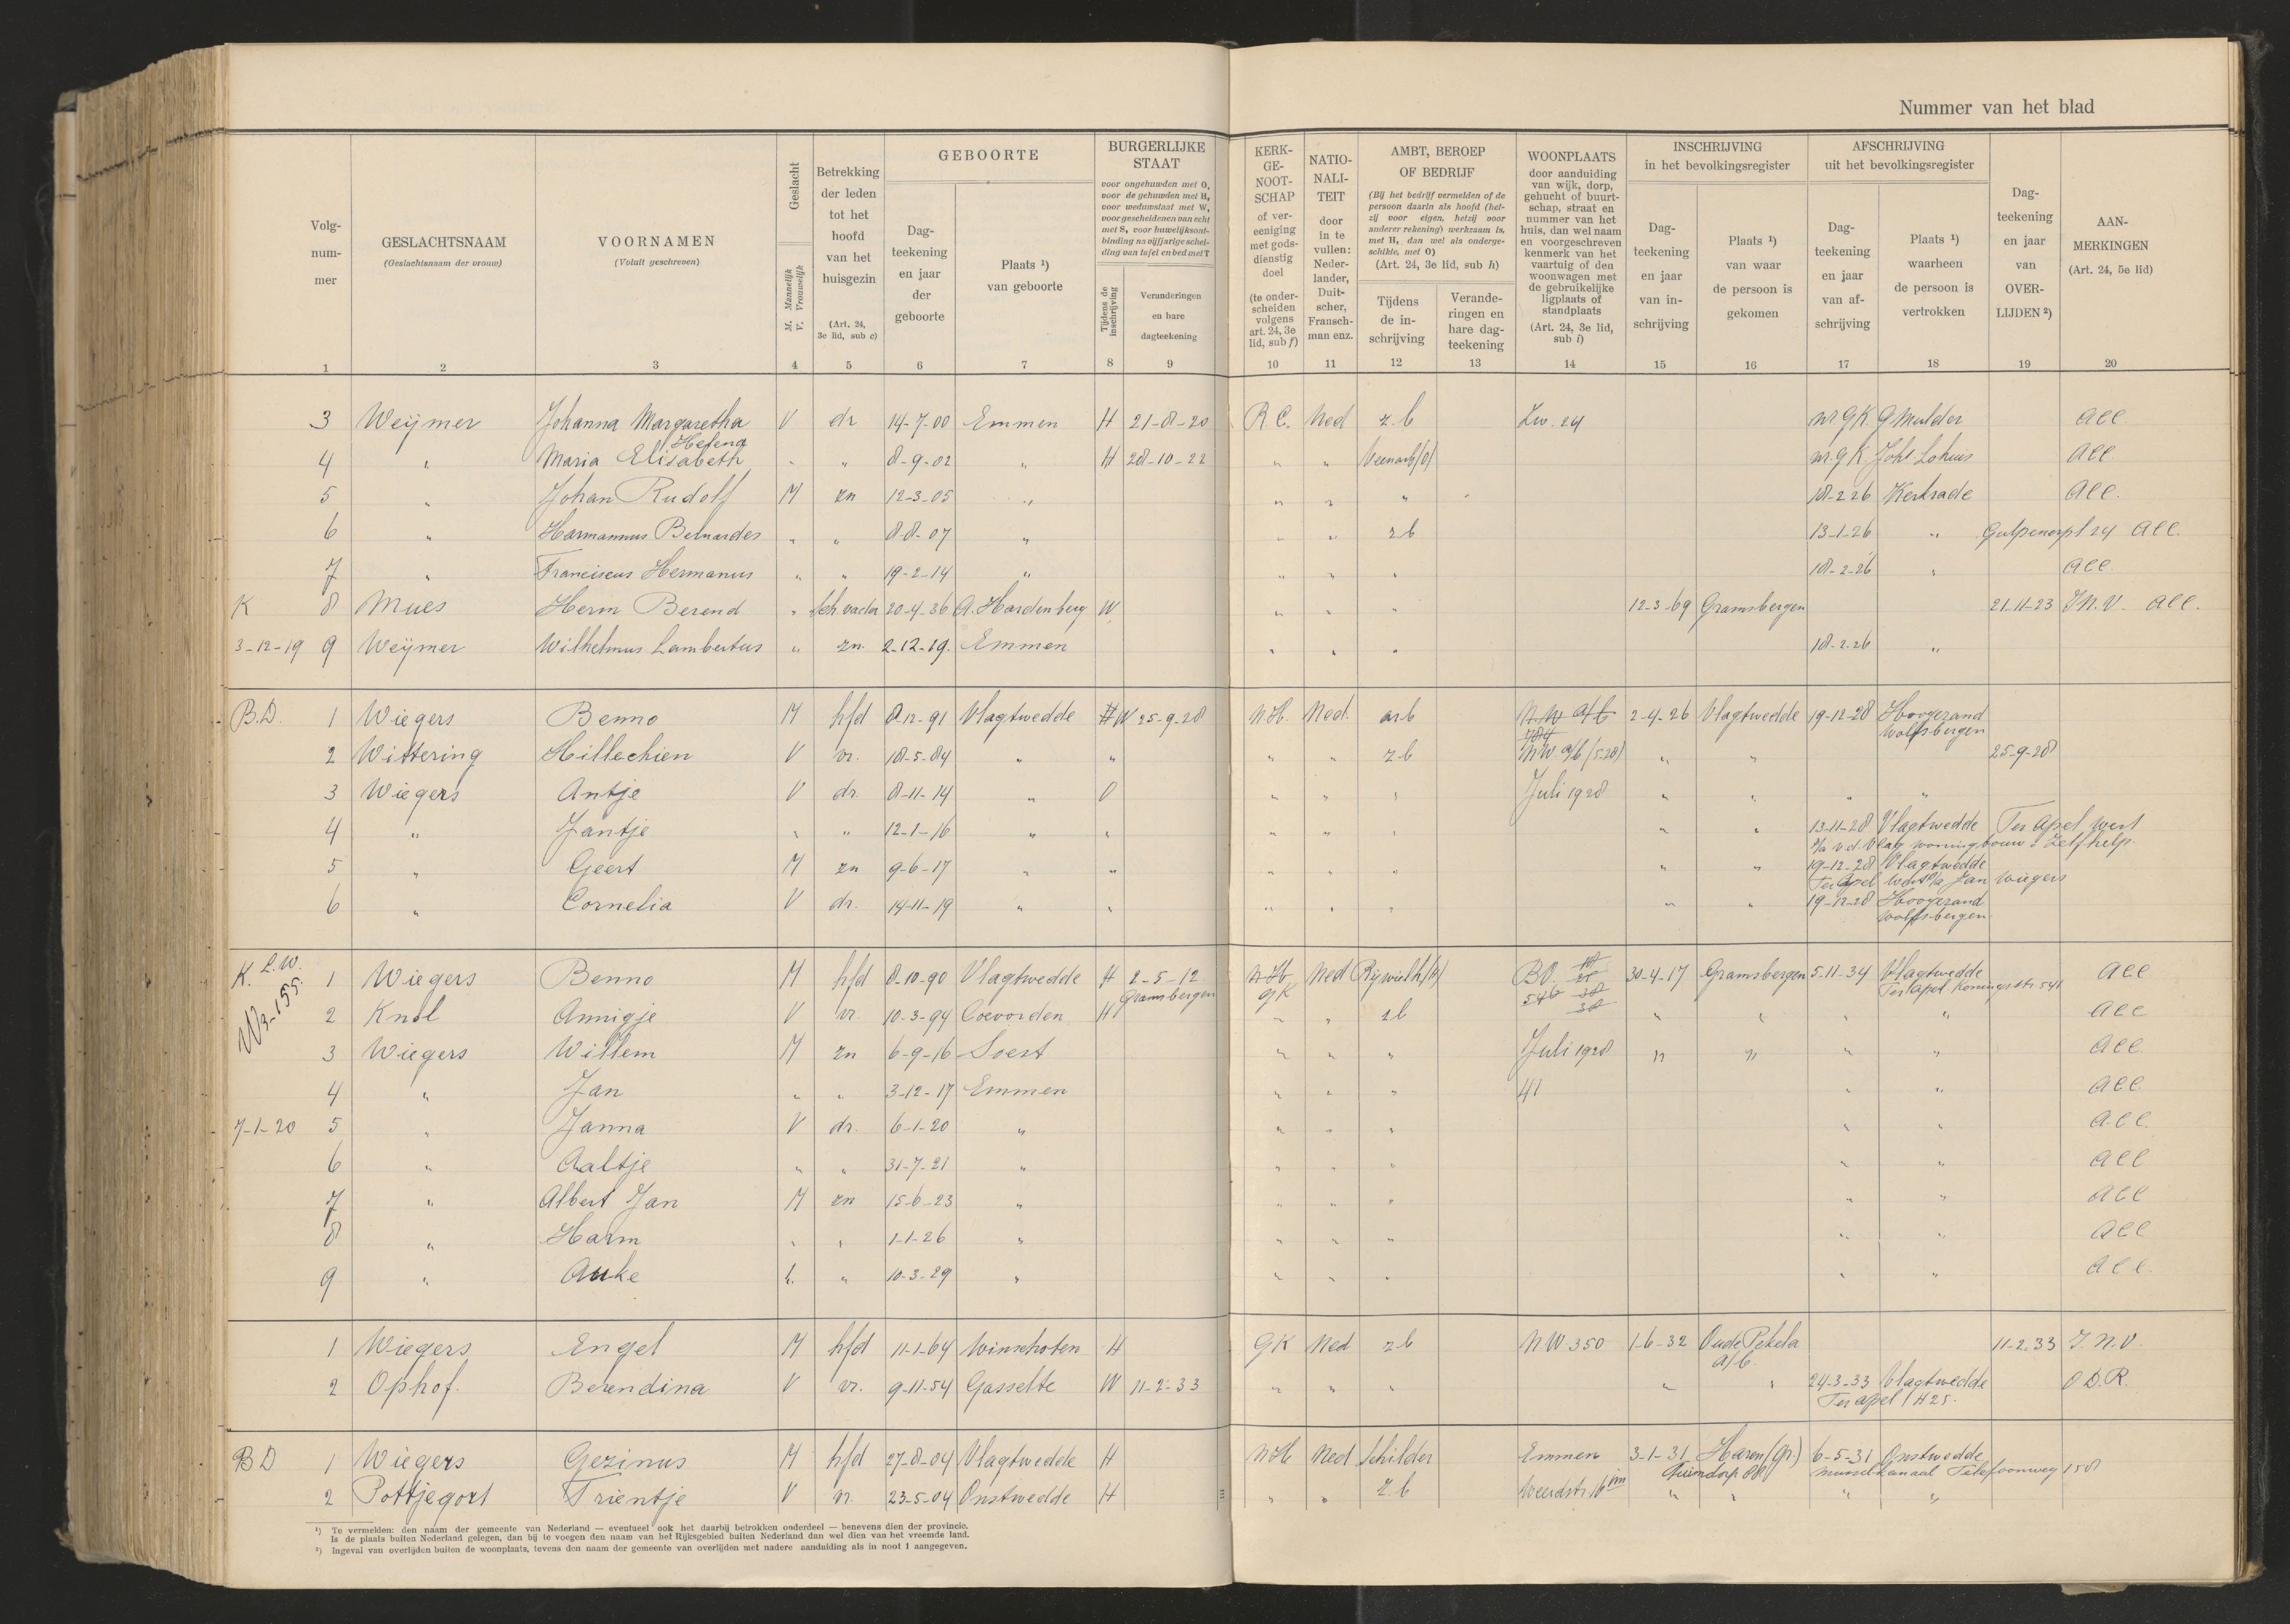 Nummer van het blad
Volg-
num-
mer
GESLACHTSNAAM
(Geslachtsnaam der vrouw)
VOORNAMEN
(Voluit geschreven)
Geslacht
M. Mannelijk
V. Vrouwelijk
Betrekking
der leden
tot het
hoofd
van het
huisgezin
(Art. 24,
3e lid, sub c)
GEBOORTE
Dag-
teekening
en jaar
der
geboorte
Plaats ¹)
van geboorte
BURGERLIJKE
STAAT
voor ongehuwden met O,
voor de gehuwden met H,
voor weduwstaat met W,
voor gescheidenen van echt
met S, voor huwelijksont-
binding na vijfjarige schei-
ding van tafel en bed met T
Tijdens de
inschrijving
Veranderingen
en hare
dagteekening
KERK-
GE-
NOOT-
SCHAP
of ver-
eeniging
met gods-
dienstig
doel
(te onder-
scheiden
volgens
art. 24, 3e
lid, sub f)
NATIO-
NALI-
TEIT
door
in te
vullen:
Neder-
lander,
Duit-
scher,
Fransch-
man enz.
AMBT, BEROEP
OF BEDRIJF
(Bij het bedrijf vermelden of de
persoon daarin als hoofd (het-
zij voor eigen, hetzij voor
anderer rekening) werkzaam is,
met H, dan wel als onderge-
schikte, met O)
(Art. 24, 3e lid, sub h)
Tijdens
de in-
schrijving
Verande-
ringen en
hare dag-
teekening
WOONPLAATS
door aanduiding
van wijk, dorp,
gehucht of buurt-
schap, straat en
nummer van het
huis, dan wel naam
en voorgeschreven
kenmerk van het
vaartuig of den
woonwagen met
de gebruikelijke
ligplaats of
standplaats
(Art. 24, 3e lid,
sub i)
INSCHRIJVING
in het bevolkingsregister
Dag-
teekening
en jaar
van in-
schrijving
Plaats ¹)
van waar
de persoon is
gekomen
AFSCHRIJVING
uit het bevolkingsregister
Dag-
teekening
en jaar
van af-
schrijving
Plaats ¹)
waarheen
de persoon is
vertrokken
Dag-
teekening
en jaar
van
OVER-
LIJDEN ²)
AAN-
MERKINGEN
(Art. 24, 5e lid)
1 2 3 4 5 6 7 8 9 10 11 12 13 14 15 16 17 18 19 20
3 Weijmer Johanna Margaretha V dr 14-7-00 Emmen H 21-8-20 R.C. Ned z.b Zw. 24 nr. GK G Mulder acc
Helena
4 " Maria Elisabeth " " 8-9-02 " H 28-10-22 " " Veenarb(o) nr. GK. Acc
5 " Johan Rudolf M zn 12-3-05 " " " " 18-2-26 Kerkrade acc.
6 " Harmannus " " 8-8-07 " " " zb 13-1-26 " 24 acc.
7 " Franciscus Hermanus " " 19-2-14 " " " " 18-2-26 " acc.
K 8 Mues Herm Berend " Sch.vader 20-4-36 A. Hardenberg W " " " 12-3-69 Gramsbergen 21-11-23 J.N.V. acc.
3-12-19 9 Weijmer Wilhelmus Lambertus " zn. 2-12-19. Emmen " " " 18-2-26 "
B.D. 1 Wiegers Benno M hfd 8-12-91 Vlagtwedde H W 25-9-28 N.H. Ned. arb N.W. a/b 2-4-26 Vlagtwedde 19-12-28 Hoogezand
Wolfsbergen
2 Wittering Hillechien V vr. 18-5-84 " " " " z.b N.W. a/b (5-28) " " 25-9-28
3 Wiegers Antje V dr. 8-11-14 " O " " " Juli 1928 " " " "
4 " Jantje " " 12-1-16 " " " " " " " 13-11-28 Vlagtwedde Ter Apel west
p/a v.d. Vlag woningbouw Zelfhelp.
5 " Geert M zn 9-6-17 " " " " " " " 19-12-28 Vlagtwedde
Ter Apel West p/a Jan Wiegers
6 " Cornelia V dr. 14-11-19 " " " " " " " 19-12-28 Hoogezand
Wolfsbergen
K. L.W. 1 Wiegers Benno M hfd 8-10-90 Vlagtwedde H 2-5-12 N.H. Ned Rijwielh(h) BO. 30-4-17 Gramsbergen 5-11-34 Vlagtwedde acc
Gramsbergen GK 546 38 Ter Apel Koningstr 541
W3-155.
2 Knol Annigje V vr. 10-3-94 Coevorden H " " zb " " " " acc
3 Wiegers Willem M zn 6-9-16 Soest " " " Juli 1928 " " " " acc
4 " Jan " " 3-12-17 Emmen " " " 41 " " acc
7-1-20 5 " Janna V dr. 6-1-20 " " " " " " acc.
6 " Aaltje " " 31-7-21 " " " " " " acc
7 " Albert Jan M zn 15-6-23 " " " " " " acc
8 " Harm " " 1-1-26 " " " " " " acc
9 " Auke " " 10-3-29 " " " " " " acc.
1 Wiegers Engel M hfd 11-1-64 Winschoten H GK Ned zb NW 350 1-6-32 Oude Pekela 11-2-33 J.N.V.
a/b.
2 Ophof. Berendina V vr. 9-11-54 Gasselte W 11-2-33 " " " " " 24-3-33 Vlagtwedde O.D.R.
Ter Apel H 25.
BD 1 Wiegers Gezinus M hfd 27-8-04 Vlagtwedde H N.H Ned Schilder Emmen 3-1-31 Haren (Gr.) 6-5-31 Onstwedde
Musselkanaal Telefoonweg 158
2 Pottjegort Trientje V vr. 23-5-04 Onstwedde H " " z.b Weerdstr 16 " " " "
¹) Te vermelden: den naam der gemeente van Nederland — eventueel ook het daarbij betrokken onderdeel — benevens dien der provincie.
Is de plaats buiten Nederland gelegen, dan bij te voegen den naam van het Rijksgebied buiten Nederland dan wel dien van het vreemde land.
²) Ingeval van overlijden buiten de woonplaats, tevens den naam der gemeente van overlijden met nadere aanduiding als in noot 1 aangegeven.